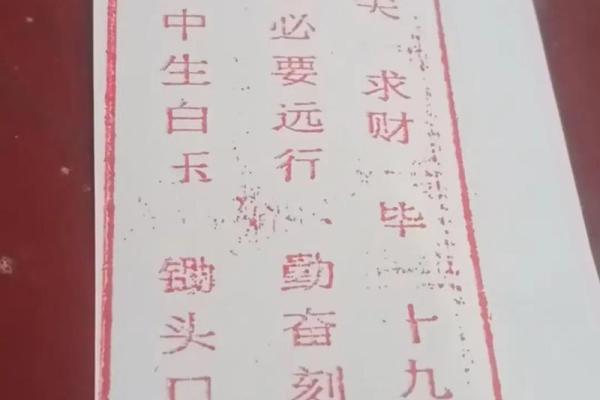 求财 毕 十九
必要远行、勤奋刻
中生白玉 锄头